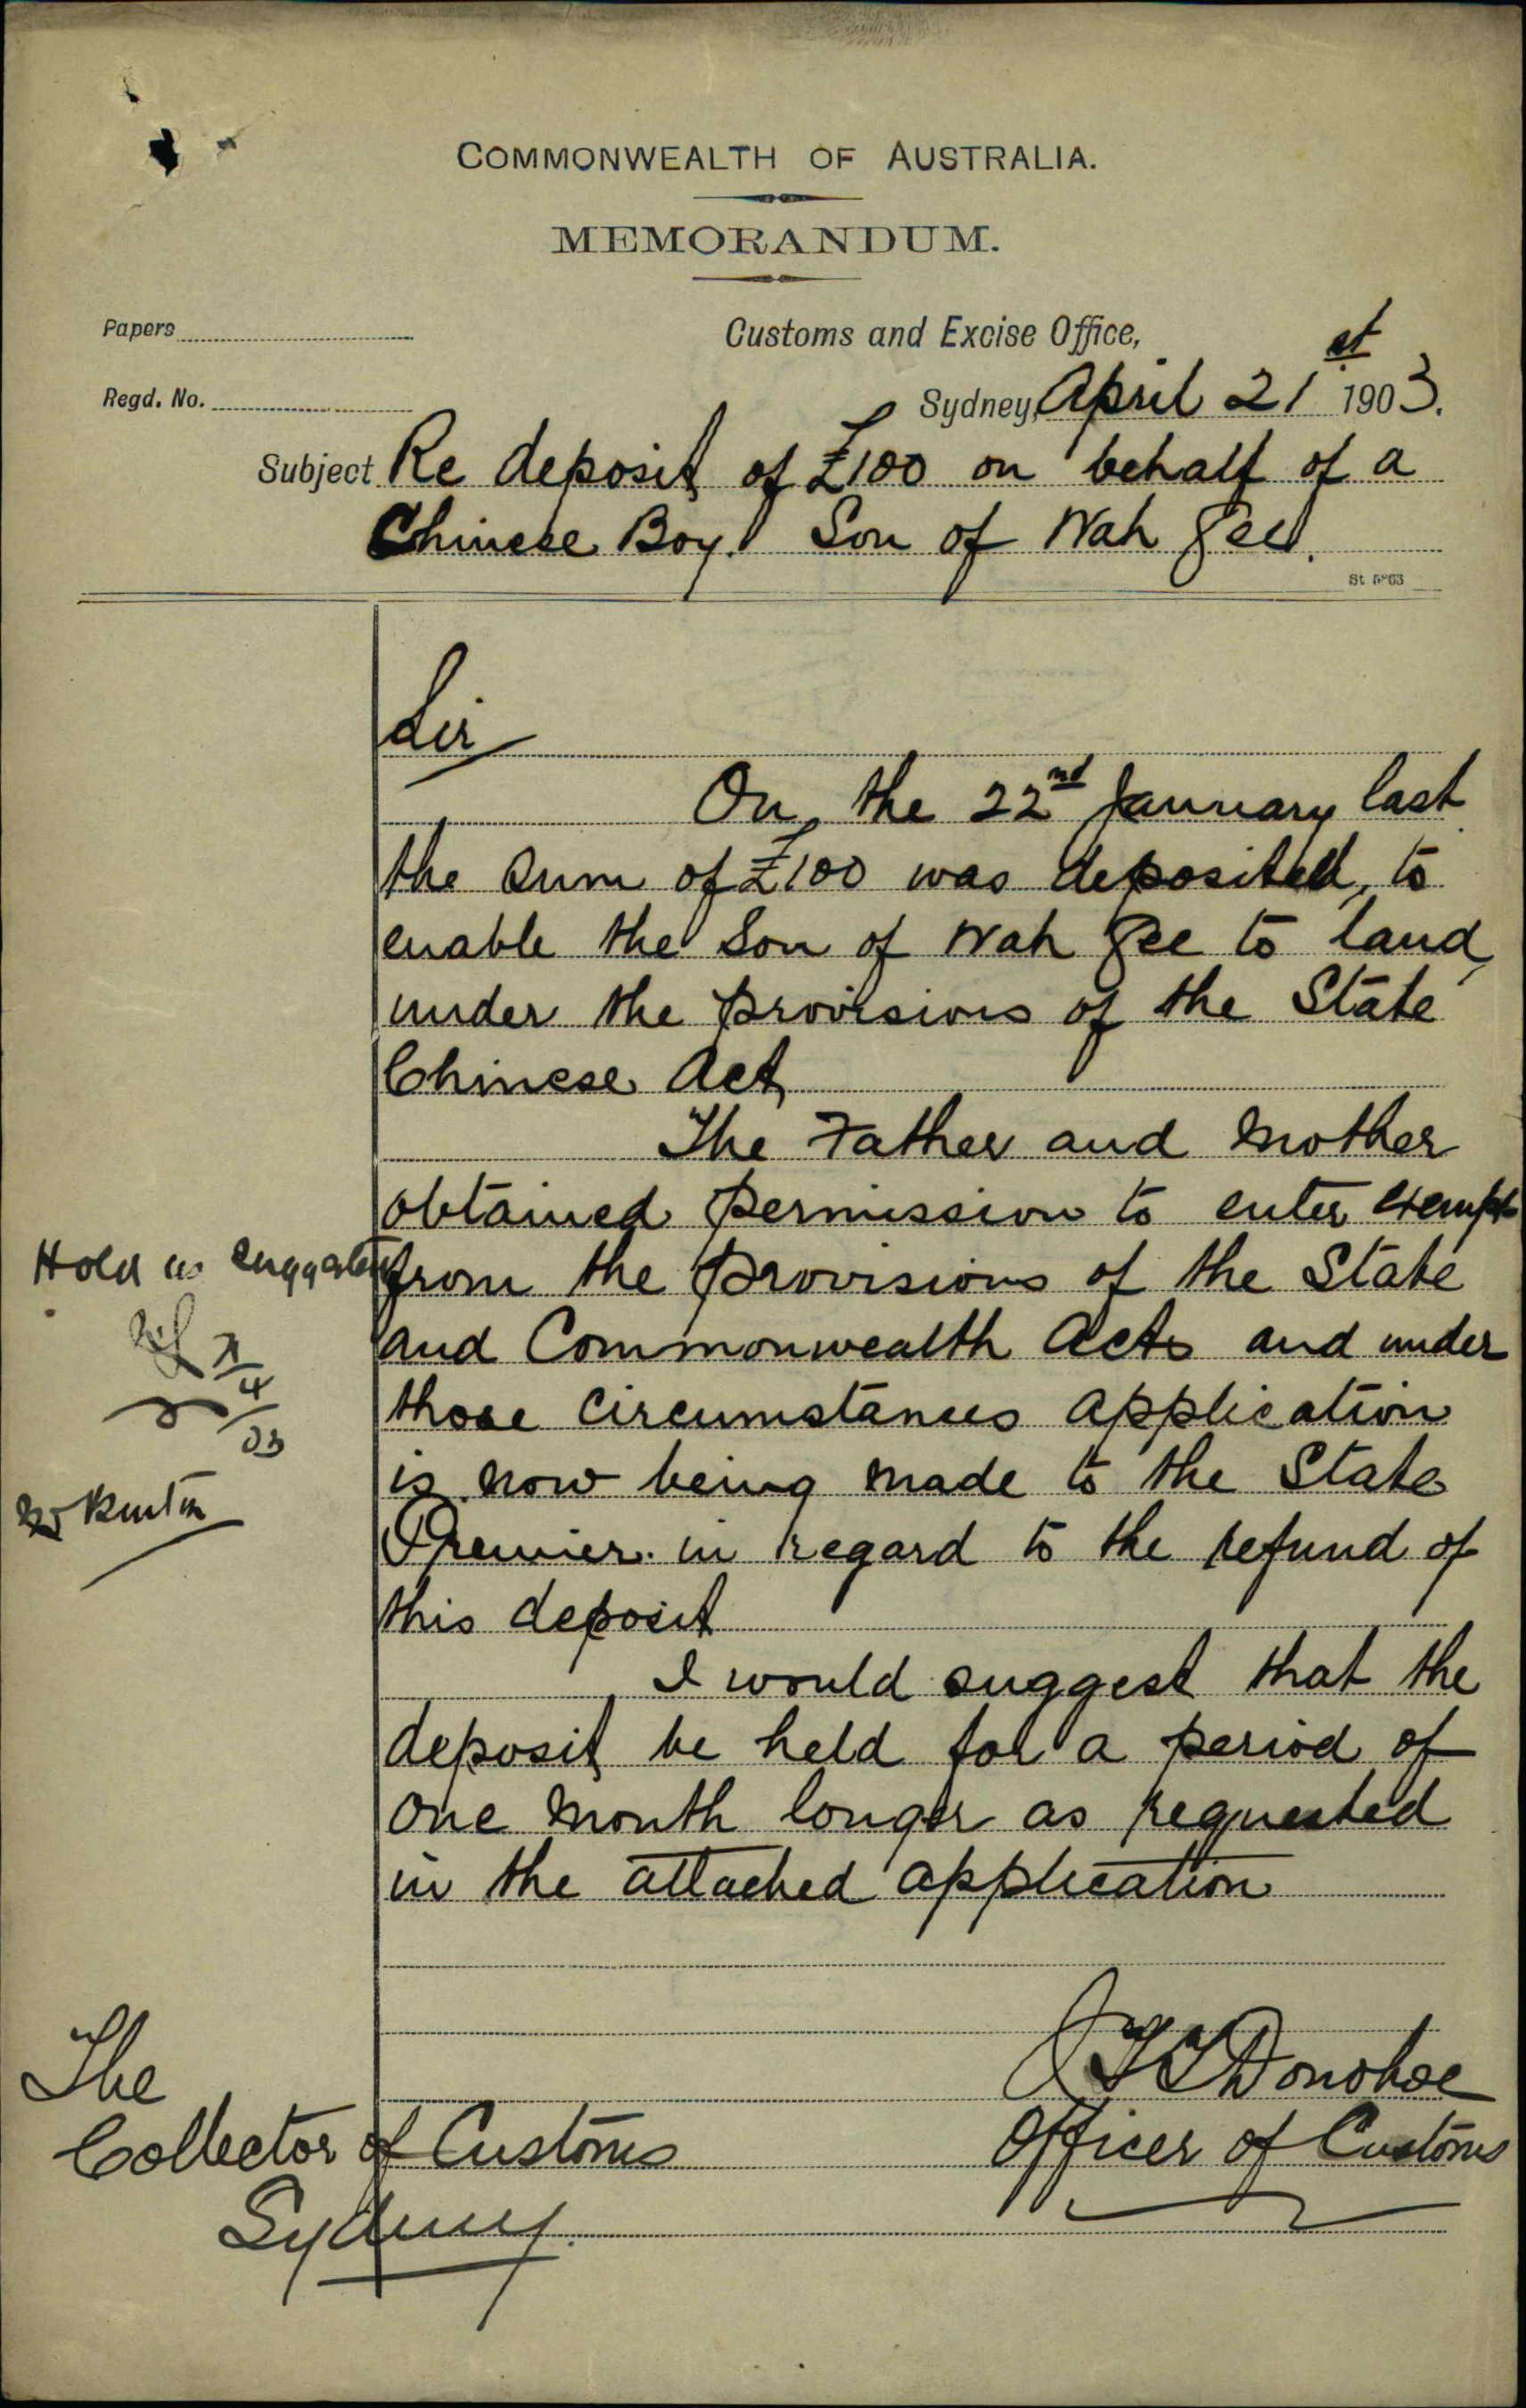 COMMONWEALTH OF AUSTRALIA.
MEMORANDUM.
Papers
Customs and Excise Office,
Regd. No.
Sydney, April 21st 1903.
Subject Re deposit of £100 on behalf of a
Chinese Boy. Son of Wah Gee.
Sir
On the 22nd January last
the sum of £100 was deposited, to
enable the Son of Wah Gee to land,
under the provisions of the State
Chinese Act,
The Father and Mother
obtained permission to enter exempt
from the provisions of the State
and Commonwealth Acts and under
those circumstances application
is now being made to the State
Premier in regard to the refund of
this deposit
I would suggest that the
deposit be held for a period of
one month longer as requested
in the attached application
Hold as suggested
4
03
The
Collector of Customs
Sydney.
Donohoe
Officer of Customs